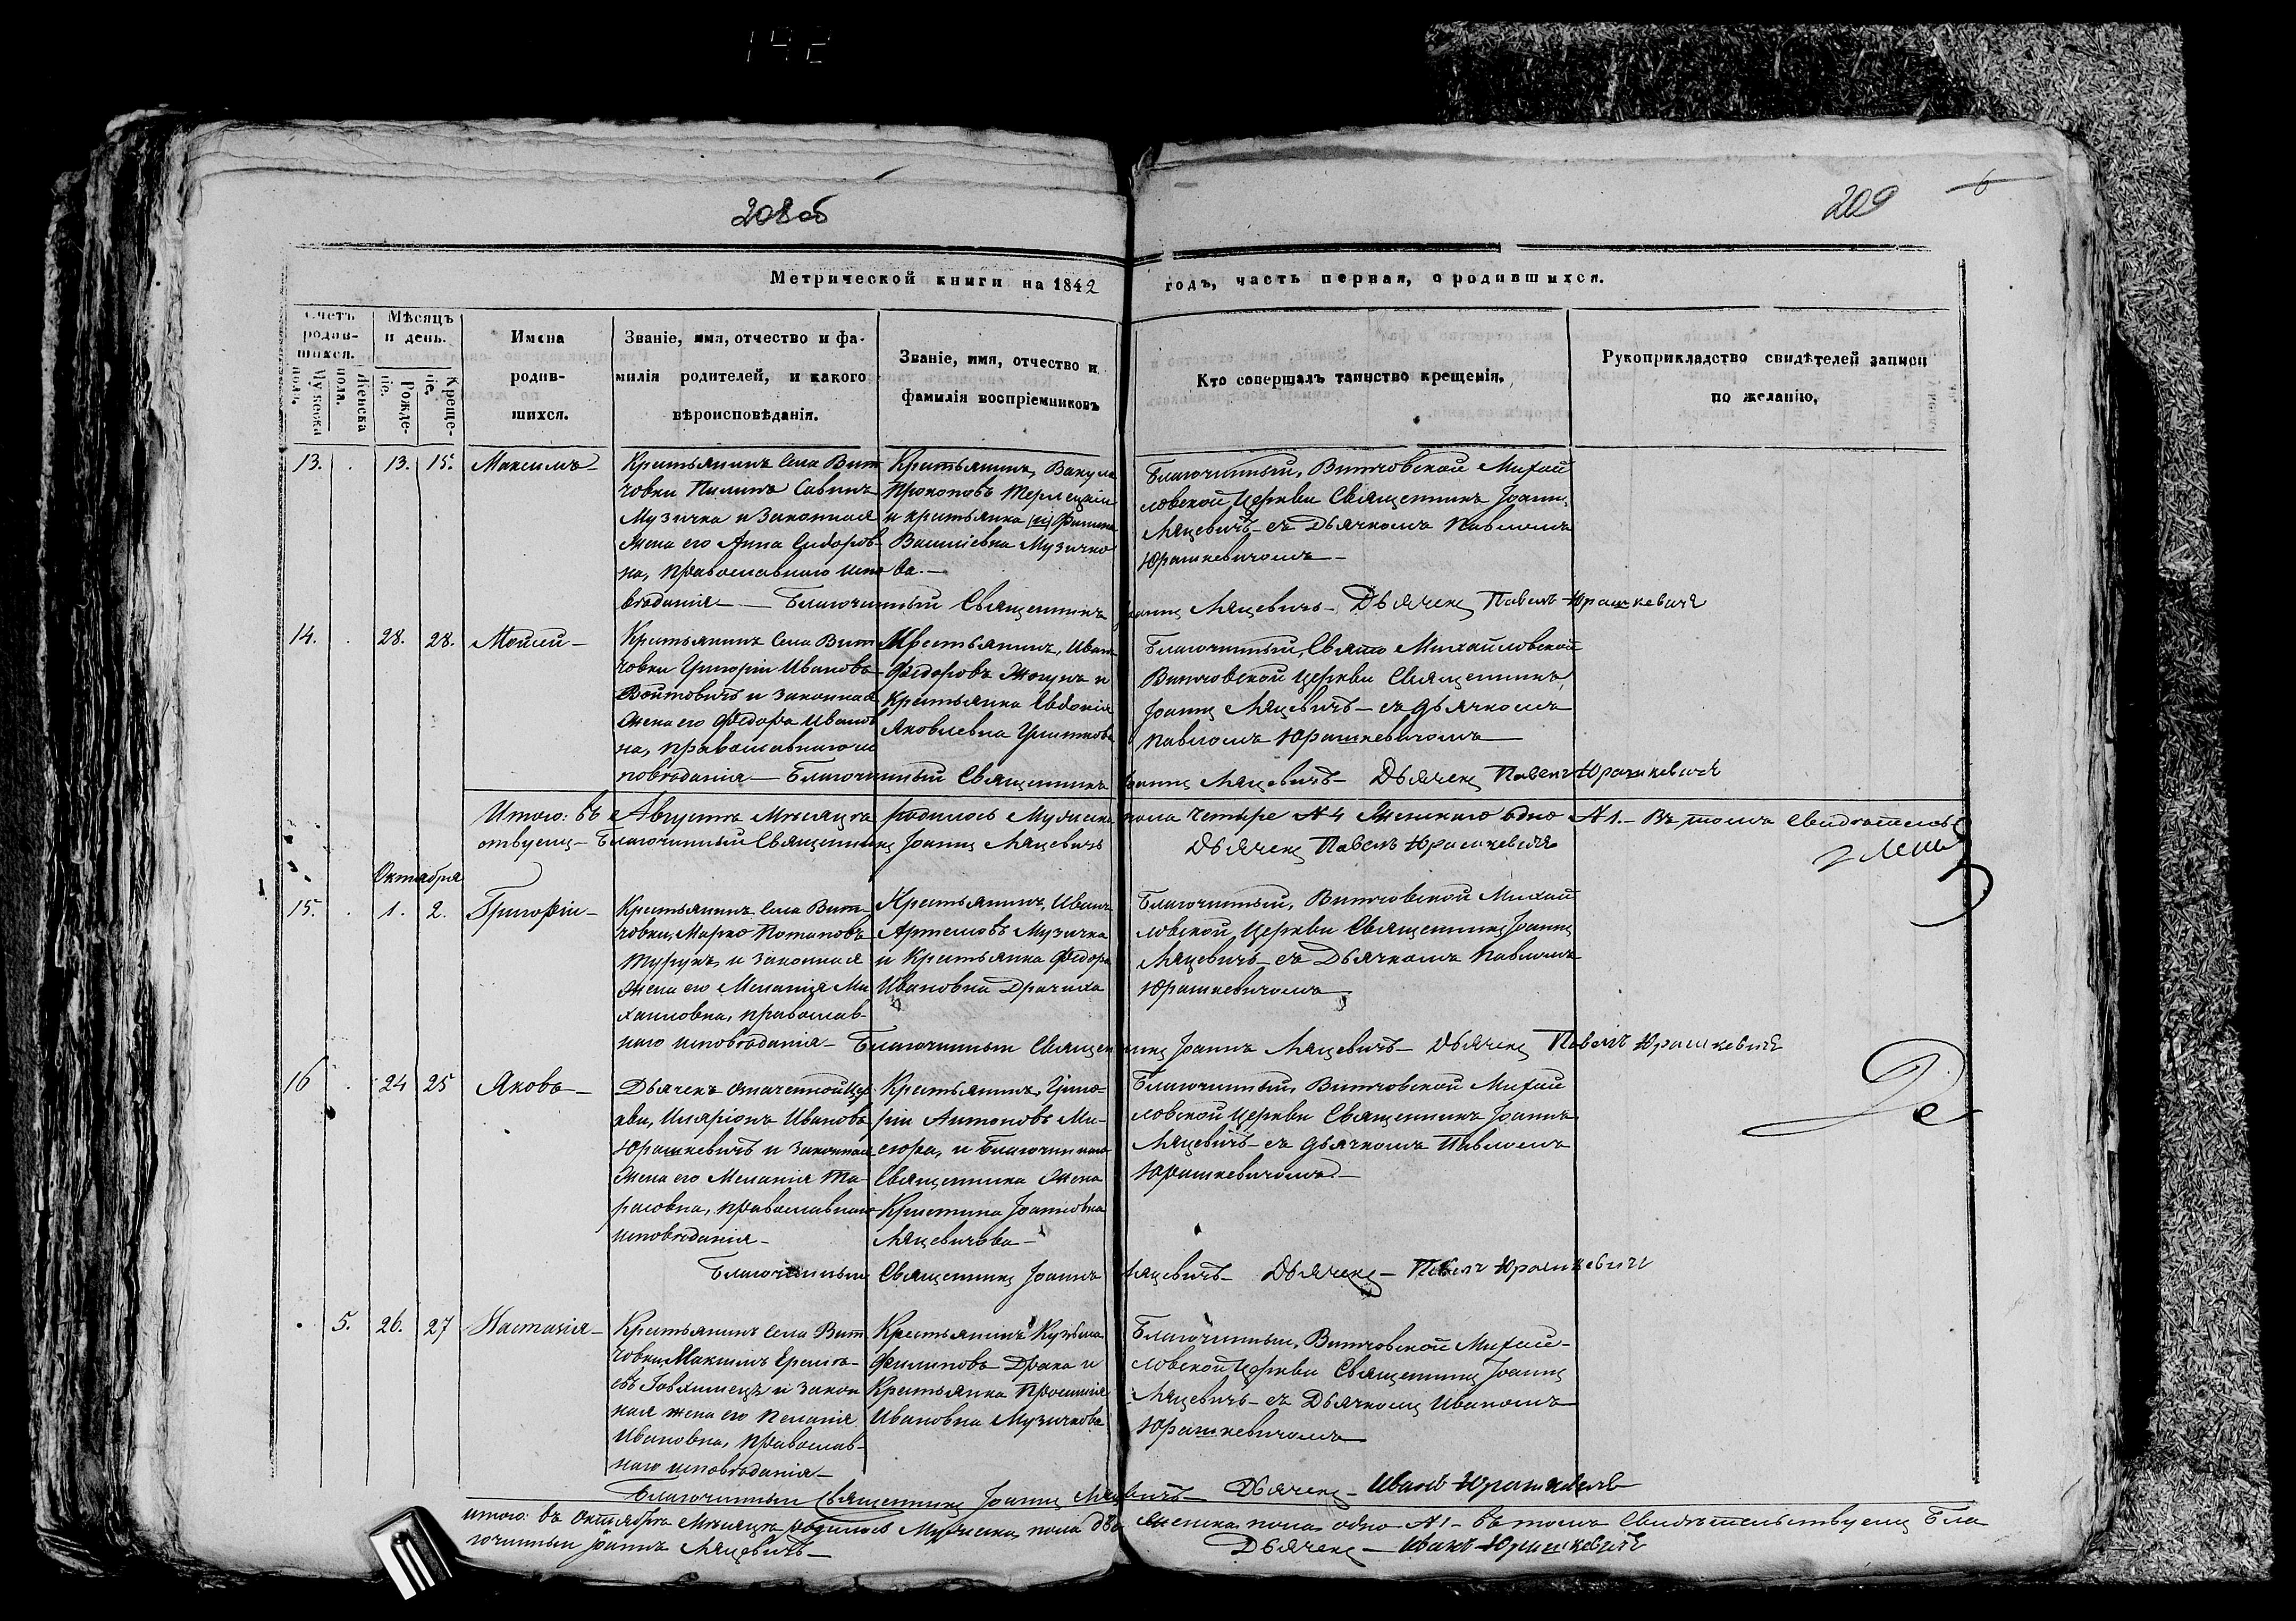 142
208об
209
6
Метрической книги на 1842 годъ, часть первая, о родившихся.
Счетъ родив-шихся.
Мужеска пола.
Женска пола.
Мѣсяцъ и день.
Рожде-ніе.
Креще-ніе.
Имена родив-шихся.
Званіе, имя, отчество и фа-
милія родителей, и какого
вѣроисповѣданія.
Званіе, имя, отчество и
фамилія воспріемниковъ
Кто совершалъ таинство крещенія.
Рукоприкладство свидѣтелей записи
по желанію.
13. 13. 15. Максимъ
Крестьянинъ села Вит
човки Пилипъ Савинъ
Музичка и законная
жена его Анна Сидоров-
на, православнаго испо
вѣданія —
Крестьянинъ, Вакула
Прокоповъ Терлецкій
и крестьянка
Василіевна Музичко
ва. —
Благочинный, Витчовской Михай
ловской Церкви Священникъ Іоаннъ
Ляцевичъ — съ Дьячкомъ Павломъ
Юрашкевичомъ —
Благочинный Священникъ Іоаннъ Ляцевичъ — Дьячекъ Павелъ Юрашкевичъ
14. 28. 28. Мойсей —
Крестьянинъ села Вит
човки Григорій Ивановъ
Войтовичъ и законная
жена его Федора Иванов
на, православнаго ис
повѣданія —
Крестьянинъ, Иванъ
Федоровъ Жогунъ и
Крестьянка Евдокія
Яковлевна
Благочинный, Свято Михайловской
Витчовской Церкви Священникъ
Іоаннъ Ляцевичъ — съ дьячкомъ
Павломъ Юрашкевичомъ —
Благочинный Священникъ Іоаннъ Ляцевичъ — Дьячекъ Павелъ Юрашкевичъ
Итого: въ Августѣ Мѣсяцѣ родилось Мужеска пола четыре №4 Женскаго одно №1. — Въ томъ Свидѣтель-
ствуемъ — Благочинный Священникъ Іоаннъ Ляцевичъ Дьячекъ Павелъ Юрашкевичъ
Октября
15. 1. 2. Григорій —
Крестьянинъ села Вит-
човки, Марко Потаповъ
и законная
жена его Меланія Ми
хаиловна, православ-
наго исповѣданія —
Крестьянинъ, Иванъ
Артемовъ Музичка
и Крестьянка Федора
Ивановна Драчиха
Благочинный, Витчовской Михай
ловской Церкви Священникъ Іоаннъ
Ляцевичъ — съ Дьячкомъ Павломъ
Юрашкевичомъ
Благочинный Священникъ Іоаннъ Ляцевичъ — Дьячекъ Павелъ Юрашкевичъ
16 24 25 Яковъ —
Дьячекъ означенной Цер
кви, Иларіонъ Ивановъ
Юрашкевичъ и законная
жена его Меланія Та-
расовна, православнаго
исповѣданія —
Крестьянинъ, Григо-
рій Антоновъ Ми-
сюра, и Благочиннаго
Священника жена
Кристина Іоанновна
Ляцевичова —
Благочинный, Витчовской Михай
ловской Церкви Священникъ Іоаннъ
Ляцевичъ — съ дьячкомъ Павломъ
Юрашкевичомъ. —
Де-
Благочинный Священникъ Іоаннъ Ляцевичъ — Дьячекъ — Павелъ Юрашкевичъ
5. 26. 27 Настасія —
Крестьянинъ села Вит
човки, Максимъ
и закон
ная жена его Пелагія
Ивановна, православ-
наго исповѣданія —
Крестьянинъ Кузьма
Филиповъ Драка и
Крестьянка
Ивановна Музичкова
Благочинный, Витчовской Михай-
ловской Церкви Священникъ Іоаннъ
Ляцевичъ — съ Дьячкомъ Иваномъ
Юрашкевичомъ
Благочинный Священникъ Іоаннъ Ляцевичъ — Дьячекъ — Иванъ Юрашкевичъ
итого: въ Октябрѣ Мѣсяцѣ родилось Мужеска пола два женска пола одно №1 — въ томъ Свидѣтельствуемъ Бла
гочинный Іоаннъ Ляцевичъ — Дьячекъ — Иванъ Юрашкевичъ